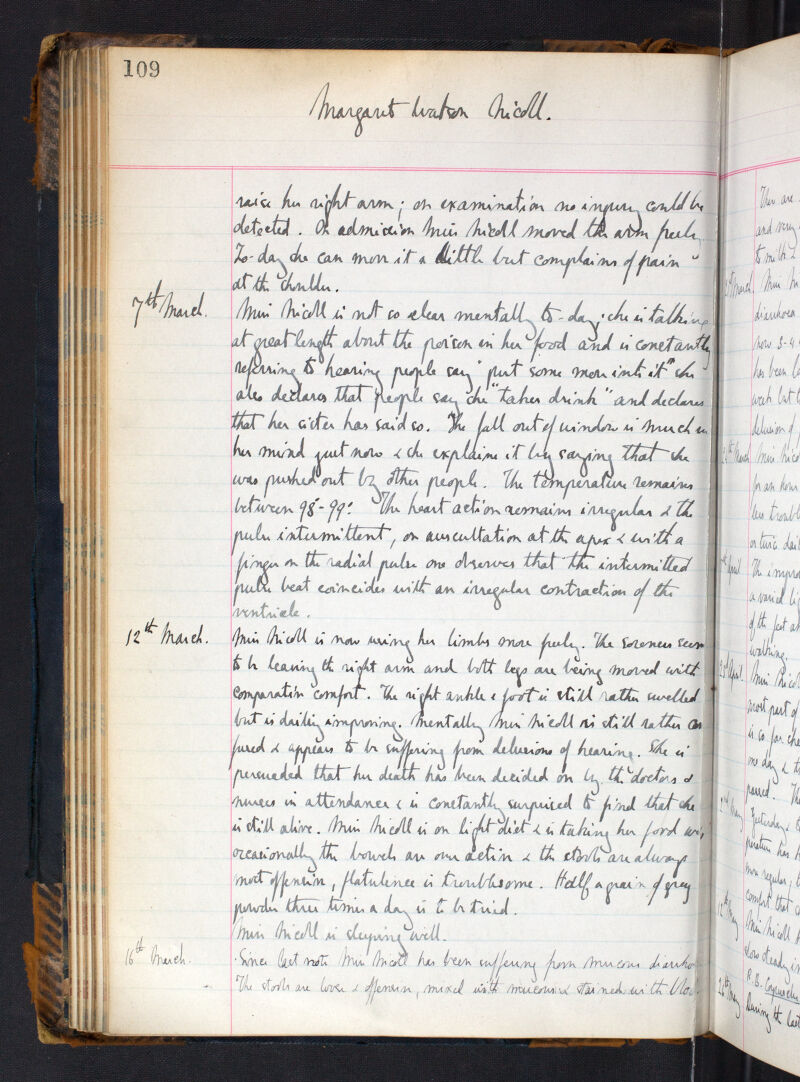 109
Margaret Watson Nicoll.
raise her right arm; on examination no injury could be
detected. On admission Miss Nicoll moved the arm freely.
To-day she can move it a little but complains of pain
at the shoulder.
7th March. Miss Nicoll is not so clear mentally to-day; she is talking
at great length about the poison in her food and is constantly
referring to hearing people say "put some more into it" she
also declares that people say she "takes drink" and declares
that her sister has said so. The fall out of window is much in
her mind just now & she explains it by saying that she
was pushed out by other people. The temperature remains
between 98°-99°. The heart action remains irregular & the
pulse intermittent, on auscultation at the apex & with a
finger on the radial pulse one observes that the intermitted
pulse beat coincides with an irregular contraction of the
ventricle.
12th March. Miss Nicoll is now using her limbs more freely. The soreness seems
to be leaving the right arm and both legs are being moved with
comparative comfort. The right ankle & foot is still rather swelled
but is daily improving. Mentally Miss Nicoll is still rather con
fused & appears to be suffering from delusions of hearing. She is
persuaded that her death has been decided on by the doctors &
nurses in attendance & is constantly surprised to find that she
is still alive. Miss Nicoll is on light diet & is taking her food well,
occasionally the bowels are over active & the stools are always
most offensive, flatulence is troublesome. Half a grain of grey
powder three times a day is to be tried.
Miss Nicoll is sleeping well.
16th March. Since last note Miss Nicoll has been suffering from mucous diarrhoea
The stools are loose & offensive, mixed with mucous & stained with bloo
There are
and very
to milk &
March Miss Ni
diarrhoea
now 3-4
has been
week but
delusion of
March Miss Nico
for an hour
less troubl
or twice dai
April The improv
a varied li
of the feet a
walking.
April. Miss Nico
most part of
is so far
one day & t
passed. Th
May Yesterday &
perature has
more regular,
comfort that
May Miss Nicoll
slow steady i
R.B.
May During the last